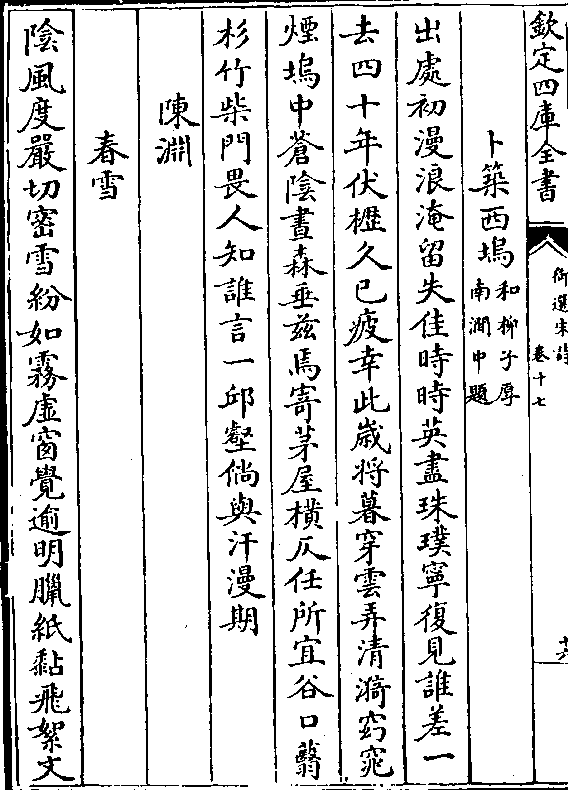 欽定四庫全書
御選宋詩
卷十七
卜築西塢和柳子厚
南澗中題
出處初漫浪淹留失佳時時英盡珠璞寧復見誰差一
去四十年伏櫪久已疲幸此歲將暮穿雲弄清漪窈窕
煙塢中蒼陰晝森垂兹焉寄茅屋橫仄任所宜谷口翳
杉竹柴門畏人知誰言一邱壑倘與汗漫期
陳淵
春雪
陰風度嚴切密雪紛如霧虛窗覺逾明臘紙黏飛絮文